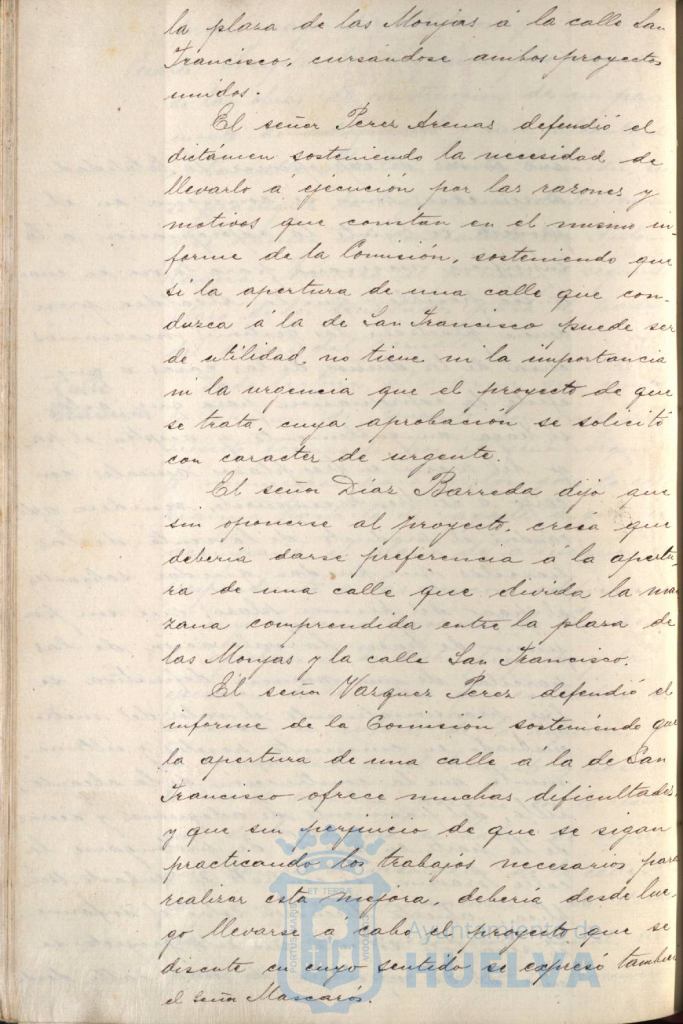 la plaza de las Monjas á la calle San
Francisco, cursándose ambos proyectos
unidos.
El señor Perez Arenas defendió el
dictámen sosteniendo la necesidad de
llevarlo a ejecución por las razones y
motivos que constan en el mismo in-
forme de la Comisión, sosteniendo que
si la apertura de una calle que con-
duzca á la de San Francisco puede ser
de utilidad no tiene ni la importancia
ni la urgencia que el proyecto de que
se trata, cuya aprobación se solicitó
con caracter de urgente.
El señor Díaz Barreda dijo que
sin oponerse al proyecto, creía que
debería darse preferencia á la apertu-
ra de una calle que divida la man
zana comprendida entre la plaza de
las Monjas y la calle San Francisco.
El señor Vazquez Perez defendió el
informe de la Comisión sosteniendo que
la apertura de una calle á la de San
Francisco ofrece muchas dificultades,
y que sin perjuicio de que se sigan
practicando los trabajos necesarios para
realizar esta mejora, debería desde lue-
go llevarse á cabo el proyecto que se
discute en cuyo sentido se expresó tambien
el señor Mascarós.
PORTUS MARIS ET TERRAE CUSTODIA
Ayuntamiento de
HUELVA